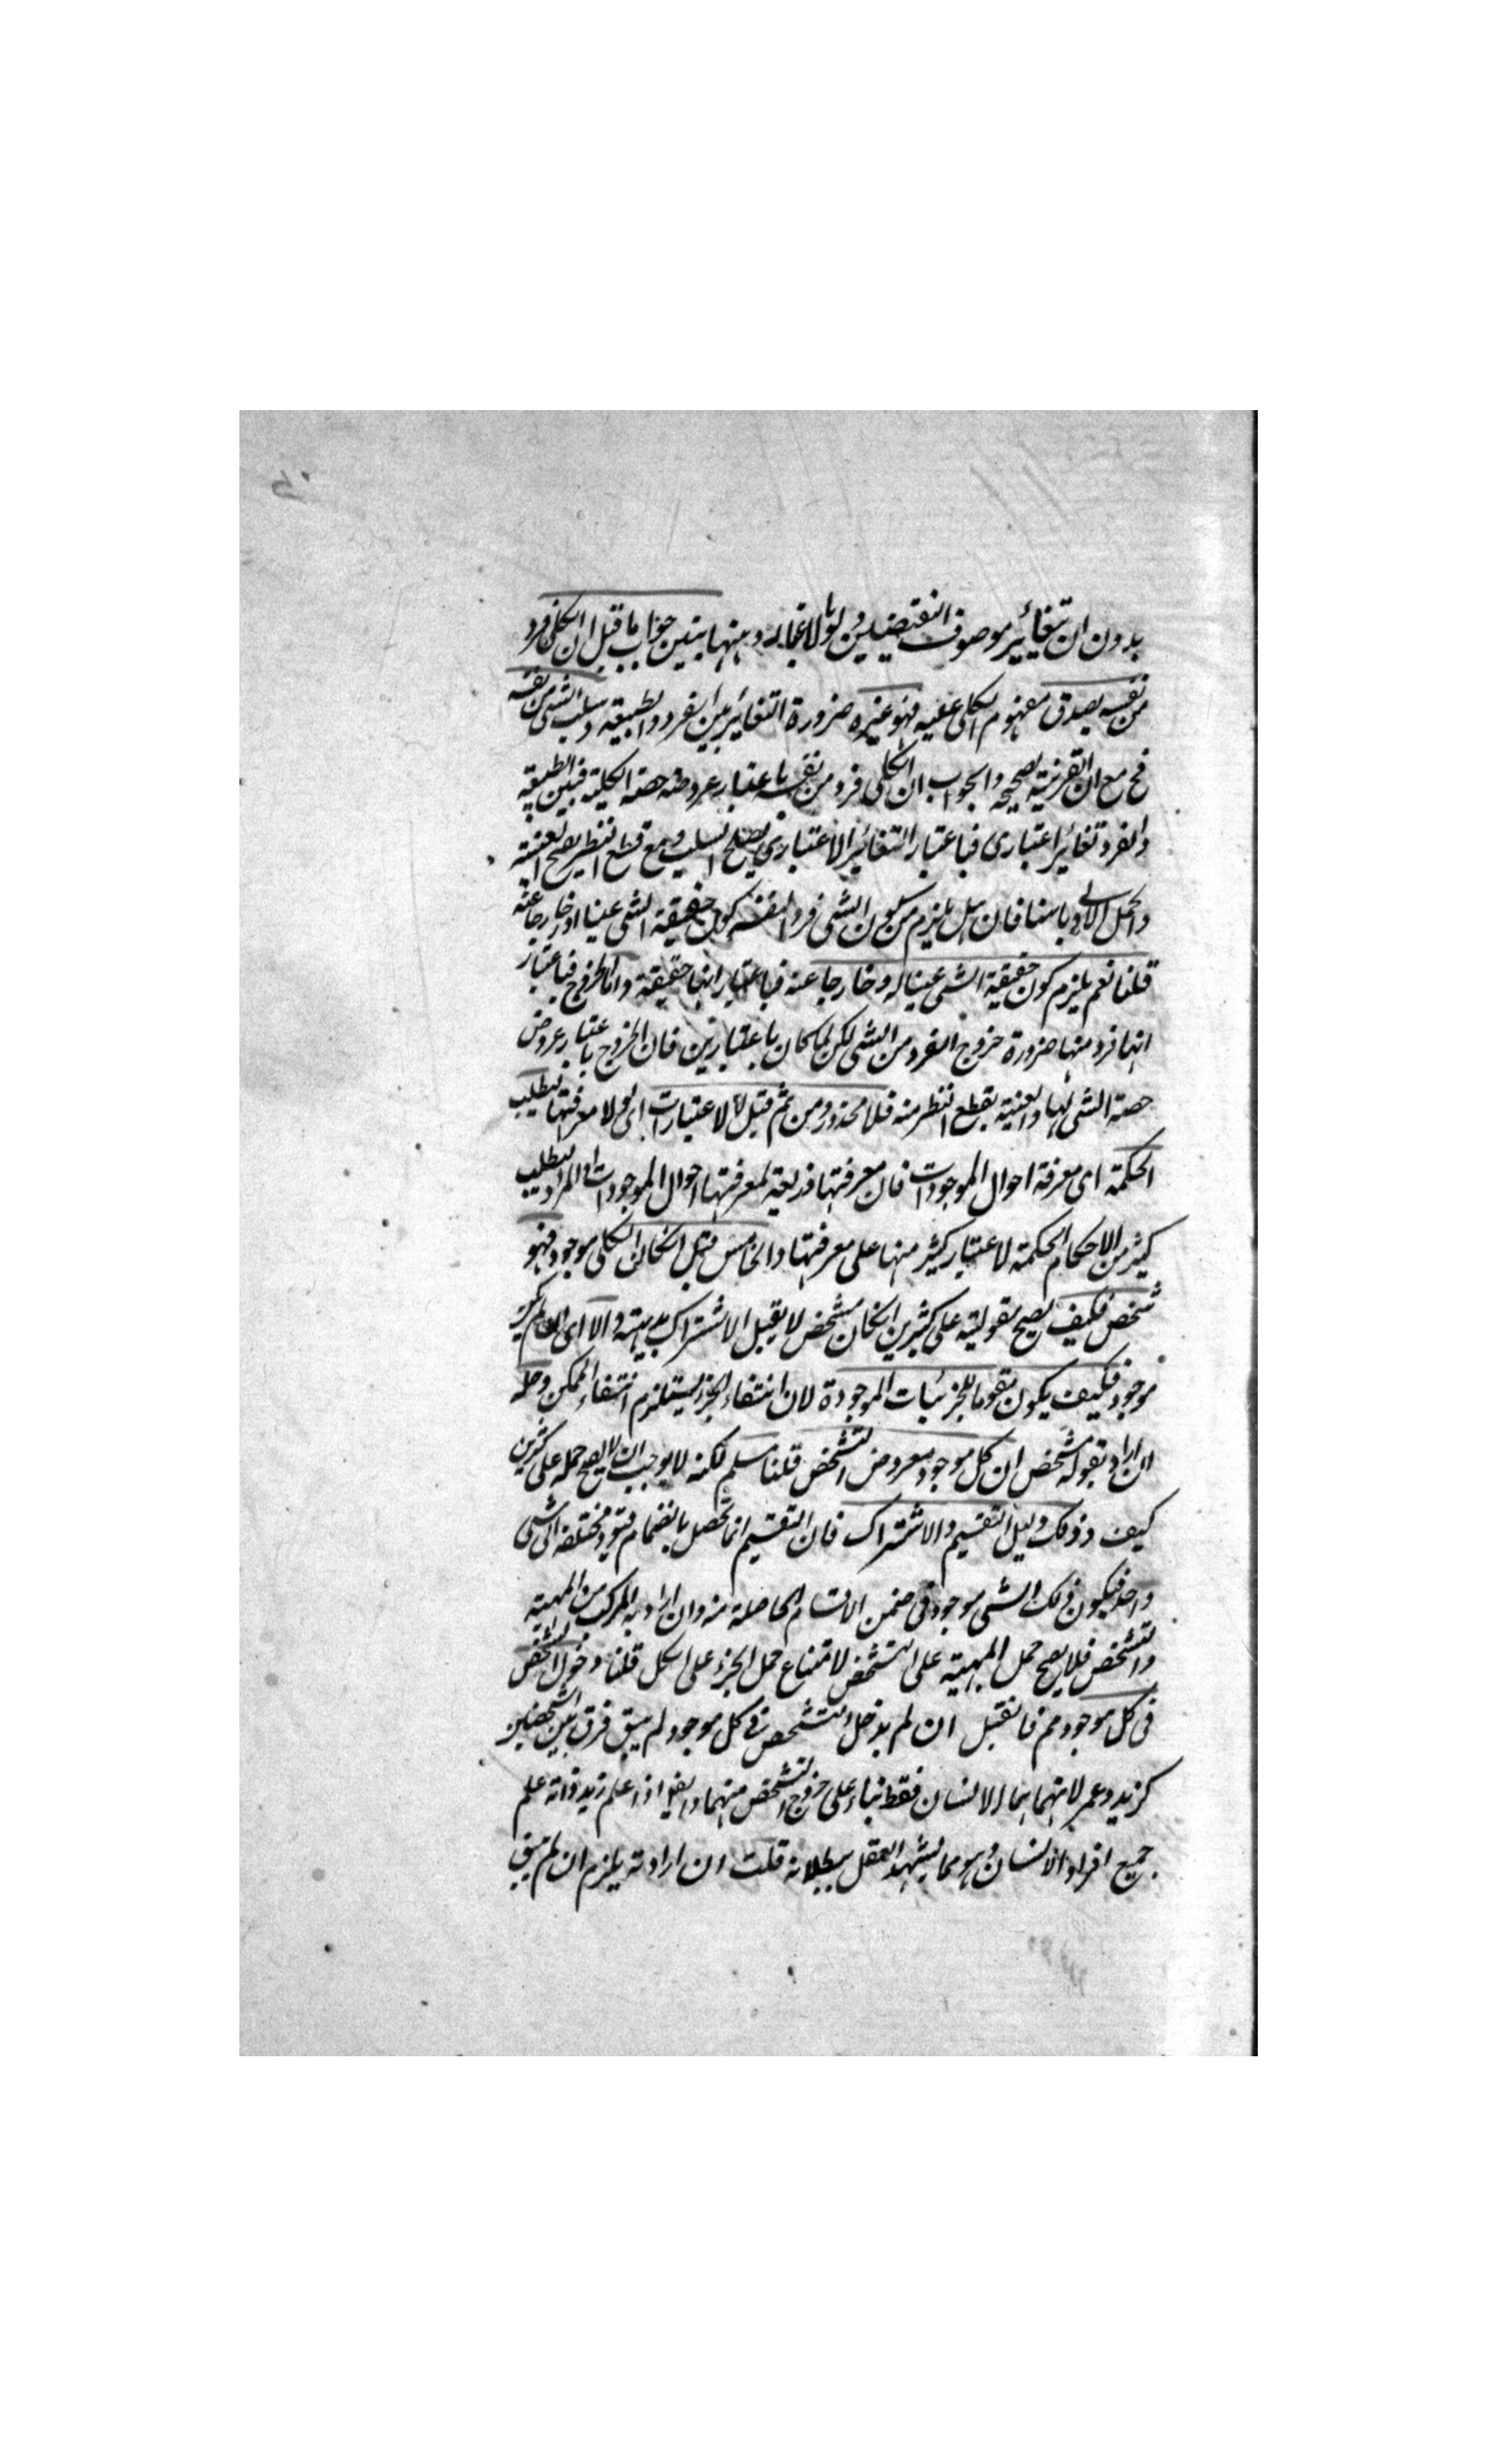 بدون ان تتغائر موصوف النقيضين ولو بالاعتبار ومنها يتبين جواب ما قيل ان الكلى فرد
من نفسه يصدق مفهوم الكلى عليه فهو غيره ضرورة التغائر بين الفرد والطبيعة وسلب الشى من نفسه
مح مع ان القرينة صحيحه والجواب ان الكلى فرد من نفسه باعتبار عروضه حصة الكلية فبين الطبيعة
والفرد تغائر اعتبارى فباعتبار التغائر الاعتبارى يصلح السلب ومع قطع النظر يصح العينية
والحمل الاولى فان قيل يلزم من كون الشى فردا لنفسه كون حقيقة الشى عينا او خارجا عنه
قلنا نعم يلزم كون حقيقة الشى عينا له وخارجا عنه فباعتبار انها حقيقة واما الخروج فباعتبار
انها فرد منها ضرورة خروج الفرد من الشى لكن لما كان باعتبارين فان الخروج باعتبار عروض
حصة الشى لها والعينية بقطع النظر منه فلا محذور ومن ثم قيل لو لا الاعتبارات اى لو لا معرفتها لبطلت
الحكمة اى معرفة احوال الموجودات فان معرفتها ذريعة لمعرفتها احوال الموجودات او المراد لبطلت
كثير من الاحكام الحكمة لاعتبار كثير منها على معرفتها والخامس قيل ان كان الكلى موجود فهو
مشخص فكيف يصح مقوليته على كثيرين ان كان مشخص لا يقبل الاشتراك بديهية والا اى ان لم يكن
موجود فكيف يكون مقوما للجزئيات الموجودة لان انتفاء الجزء يستلزم انتفاء الممكن وحله
ان اراد بقوله مشخص ان كل موجود معروض التشخص قلنا مسلم لكنه لا يوجب ان لا يصح حمله على كثيرين
كيف وذلك دليل التقسيم والاشتراك فان التقسيم انما تحصل بانضمام قيود مختلفه الى شى
واحد فيكون ذلك الشى موجود فى ضمن الاقسام الحاصلة منه وان اراد به المركب من المهية
والتشخص فلا يصح حمل المهية على التشخص لامتناع حمل الجزء على الكل قلنا دخول التشخص
فى كل موجود مم فانقيل ان لم يدخل التشخص فى كل موجود لم يبق فرق بين الشخصين
كزيد وعمر لانهما هما الانسان فقط بناء على خروج التشخص منهما وايضا اذا علم زيد ذاته علم
جميع افراد الانسان وهو مما يشهد العقل ببطلانه قلت ان ارادته يلزم ان لم يبق